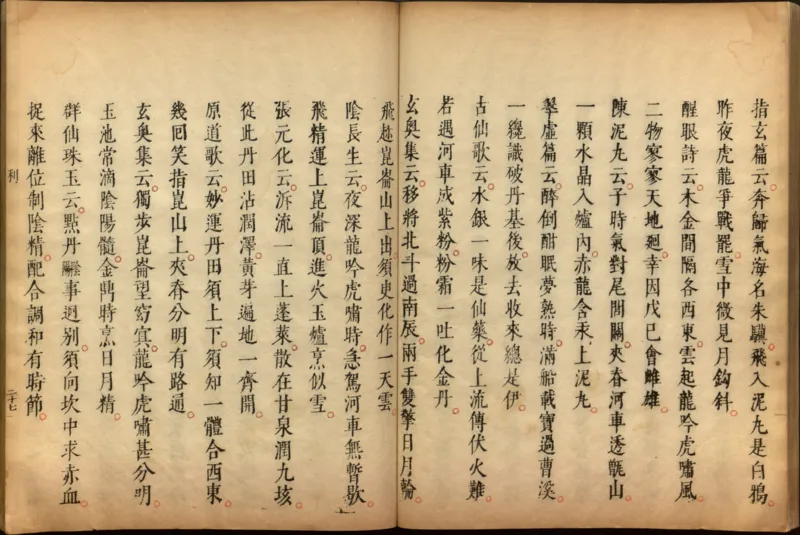 指玄篇云奔歸氣海名朱驥飛入泥丸是白鴉
昨夜虎龍爭戰罷雪中微見月鈎斜
醒眼詩云木金間隔各西東雲起龍吟虎嘯風
二物寥寥天地迥幸因戊己會雌雄
陳泥丸云子時氣對尾閭關夾脊河車透甑山
一顆水晶入爐內赤龍含汞上泥丸
翠虛篇云醉倒酣眠夢熟時滿船載寶過曹溪
一纔識破丹基後放去收來總是伊
古仙歌云水銀一味是仙藥從上流傳伏火難
若遇河車成紫粉粉霜一吐化金丹
玄奥集云移將北斗過南辰兩手雙擎日月輪
飛趂崑崙山上出須臾化作一天雲
陰長生云夜深龍吟虎嘯時急駕河車無暫歇
飛精運上崑崙頂進火玉爐烹似雪
張元化云泝流一直上蓬萊散在甘泉潤九垓
從此丹田沾潤澤黃芽遍地一齊開
原道歌云妙運丹田須上下須知一體合西東
幾回笑指崑山上夾脊分明有路通
玄奥集云獨步崑崙望窈冥龍吟虎嘯甚分明
玉池常滴陰陽髓金鼎時烹日月精
群仙珠玉云點丹陽事迥别須向坎中求赤血
捉來離位制陰精配合調和有時節
利
二十七